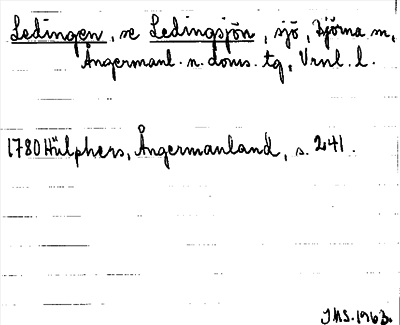 Ledingen, se Ledingsjön, sjö, Björna sn,
Ångermanl. n. doms. tg, Vrnl. l.
1780 Hülphers, Ångermanland, s. 241.
IHS. 1963.